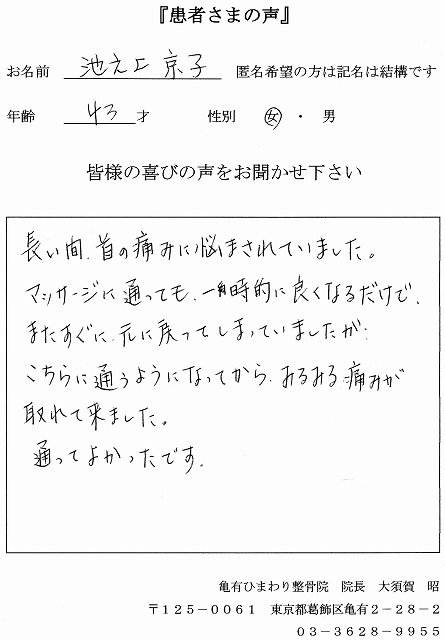 『患者さまの声』
お名前 池之上 京子 匿名希望の方は記名は結構です
年齢 43 才 性別 女 ・ 男
皆様の喜びの声をお聞かせ下さい
長い間、首の痛みに悩まされていました。
マッサージに通っても、一時的に良くなるだけで、
またすぐに、元に戻ってしまっていましたが、
こちらに通うようになってから、みるみる痛みが
取れて来ました。
通ってよかったです。
亀有ひまわり整骨院 院長 大須賀 昭
〒125-0061 東京都葛飾区亀有2-28-2
03-3628-9955